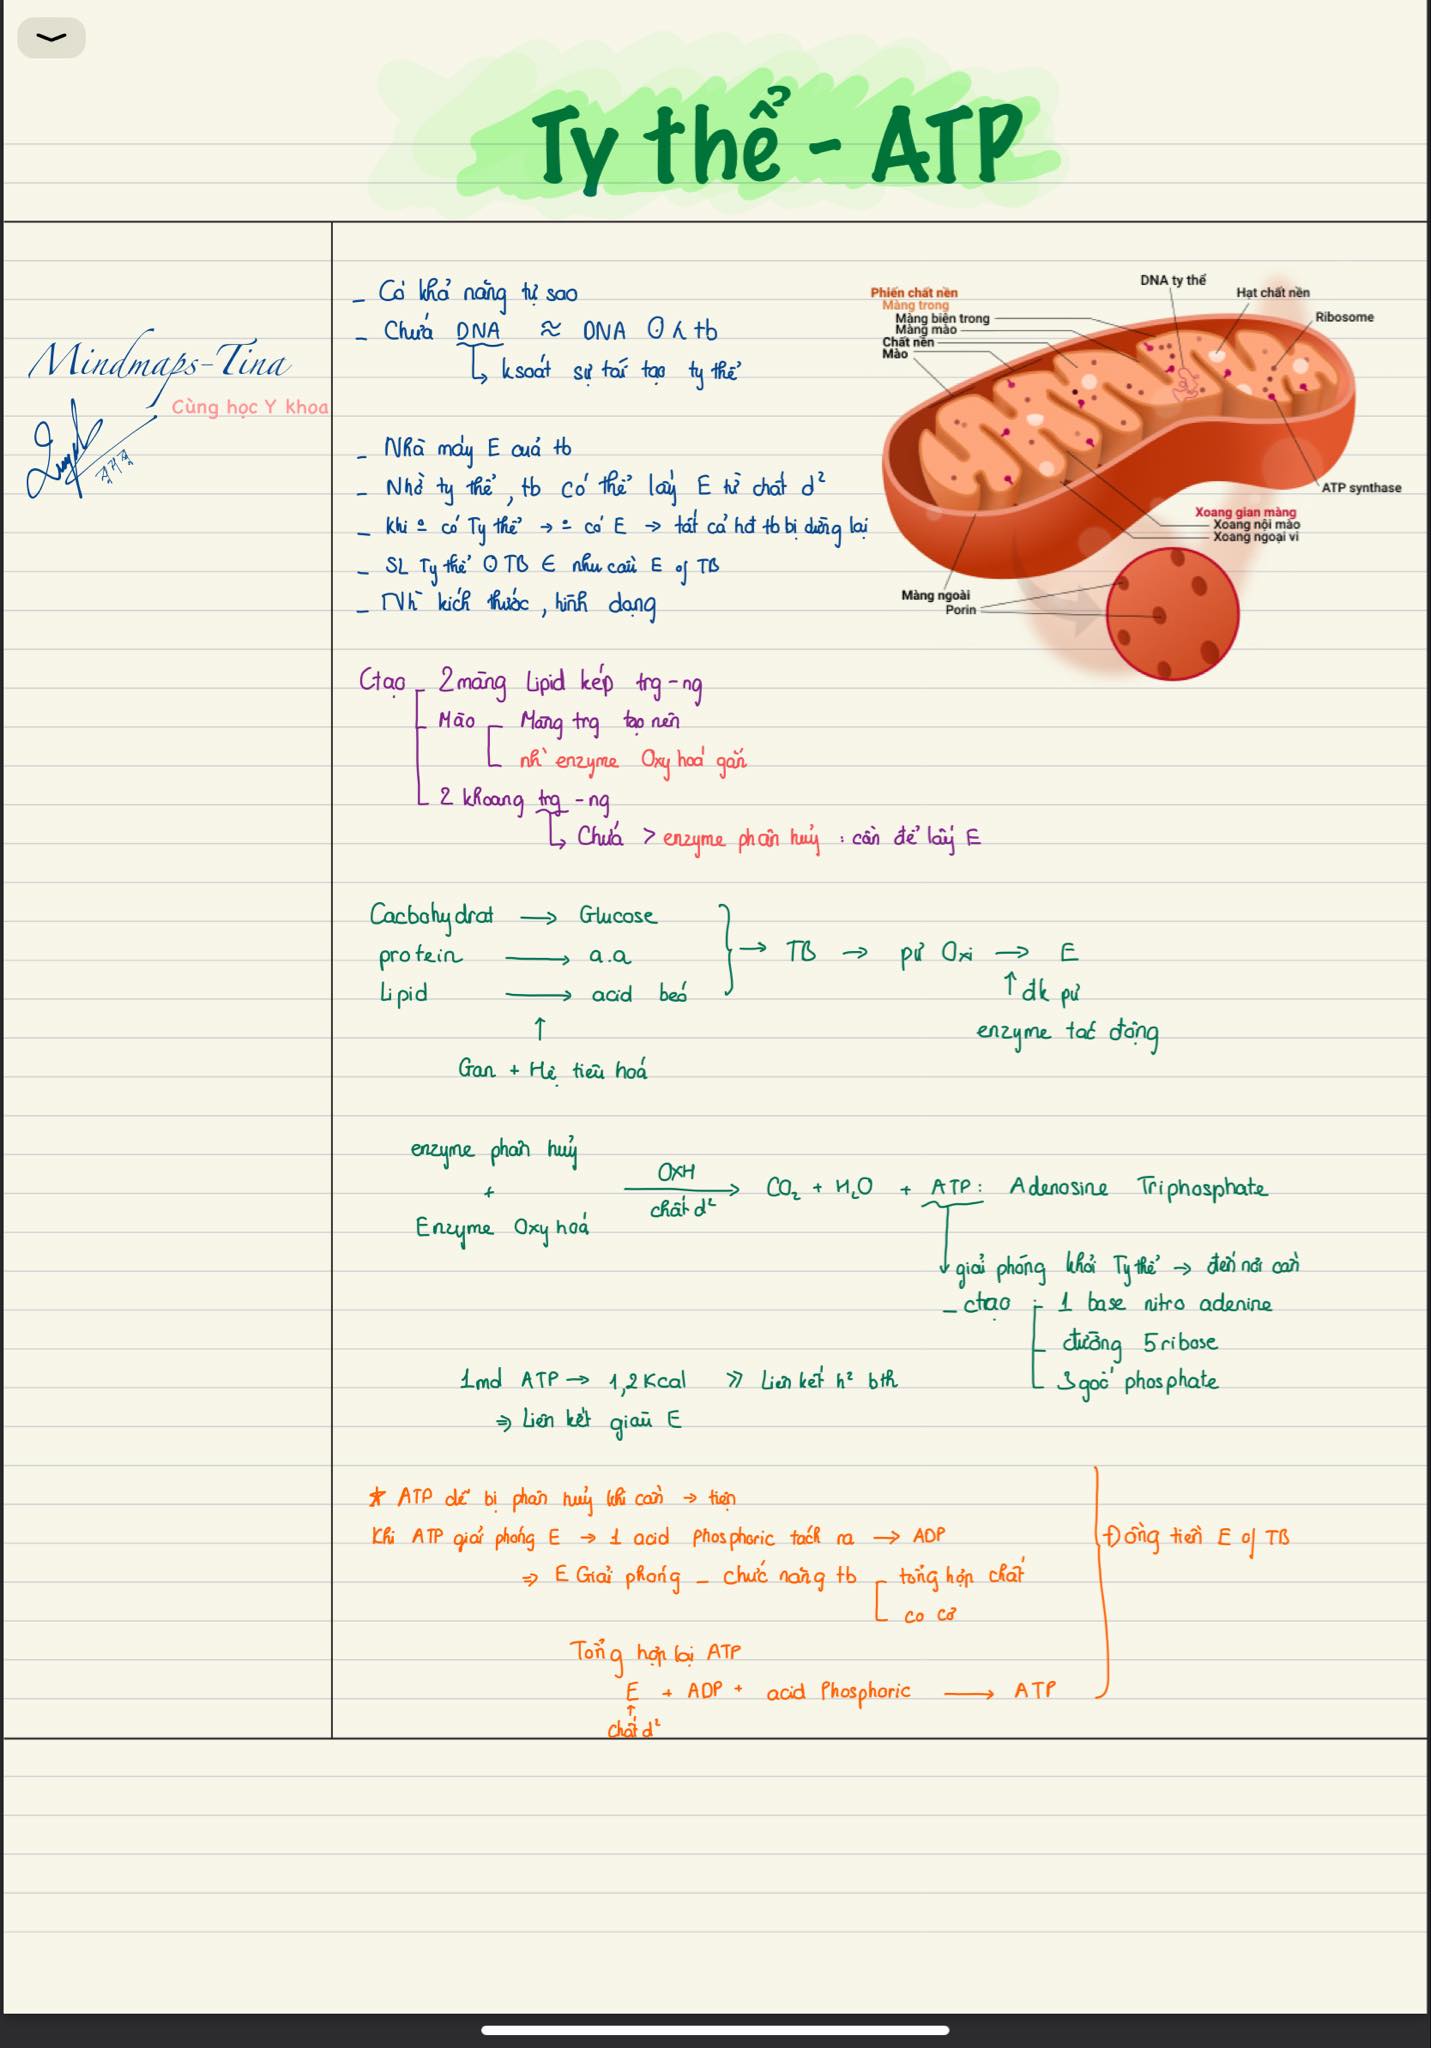 Ty thể - ATP
Mindmaps-Tina
Cùng học Y khoa
- Có khả năng tự sao
- Chứa DNA ≈ DNA ʘ λ tb
↳ ksoát sự tái tạo ty thể
- Nhà máy E của tb
- Nhờ ty thể, tb có thể lấy E từ chất d²
- khi = có Ty thể → = có E → tất cả hđ tb bị dừng lại
- SL Ty thể ʘ TB ∈ nhu cầu E of TB
- Nh` kích thước, hình dạng
Phiến chất nền
Màng trong
Màng biên trong
Màng mào
Chất nền
Mào
DNA ty thể
Hạt chất nền
Ribosome
ATP synthase
Xoang gian màng
Xoang nội mào
Xoang ngoại vi
Màng ngoài
Porin
Ctạo - 2 màng Lipid kép trg - ng
- Mào - Màng trg tạo nên
nh` enzyme Oxy hoá gắn
- 2 khoang trg - ng
↳ Chứa > enzyme phân huỷ : cần để lấy E
Cacbohydrat → Glucose
protein → a.a
Lipid → acid béo
} → TB → pứ Oxi → E
↑ đk pứ
enzyme tác động
↑
Gan + Hệ tiêu hoá
enzyme phân huỷ
+
Enzyme Oxy hoá
OXH
chất d²
→ CO₂ + H₂O + ATP : Adenosine Triphosphate
giải phóng khỏi Ty thể → đến nơi cần
- ctạo - 1 base nitro adenine
- đường 5 ribose
- 3 gốc phosphate
1 mol ATP → 1,2 Kcal >> Liên kết h² bth
⇒ Liên kết giàu E
* ATP dễ bị phân huỷ khi cần → tiện
Khi ATP giải phóng E → 1 acid Phosphoric tách ra → ADP
⇒ E Giải phóng - chức năng tb [ tổng hợp chất
co cơ
Tổng hợp lại ATP
E + ADP + acid Phosphoric → ATP
↑
chất d²
} Đồng tiền E of TB